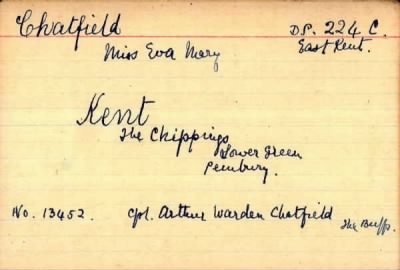 Chatfield
D.P. 224 C.
East Kent.
Miss Eva Mary
Kent
The Chippings
Lower Green
Pembury.
No. 13452. Cpl. Arthur Warden Chatfield The Buffs.